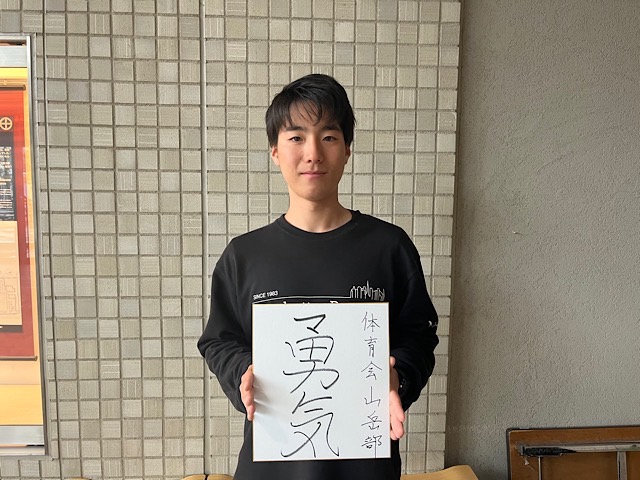 体育会山岳部
勇気
SINCE 1983